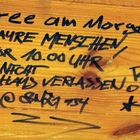 ree am Morge
AHRE MENSCHEN
OR 10.00 UHR
NICHT
HAUS VERLASSEN